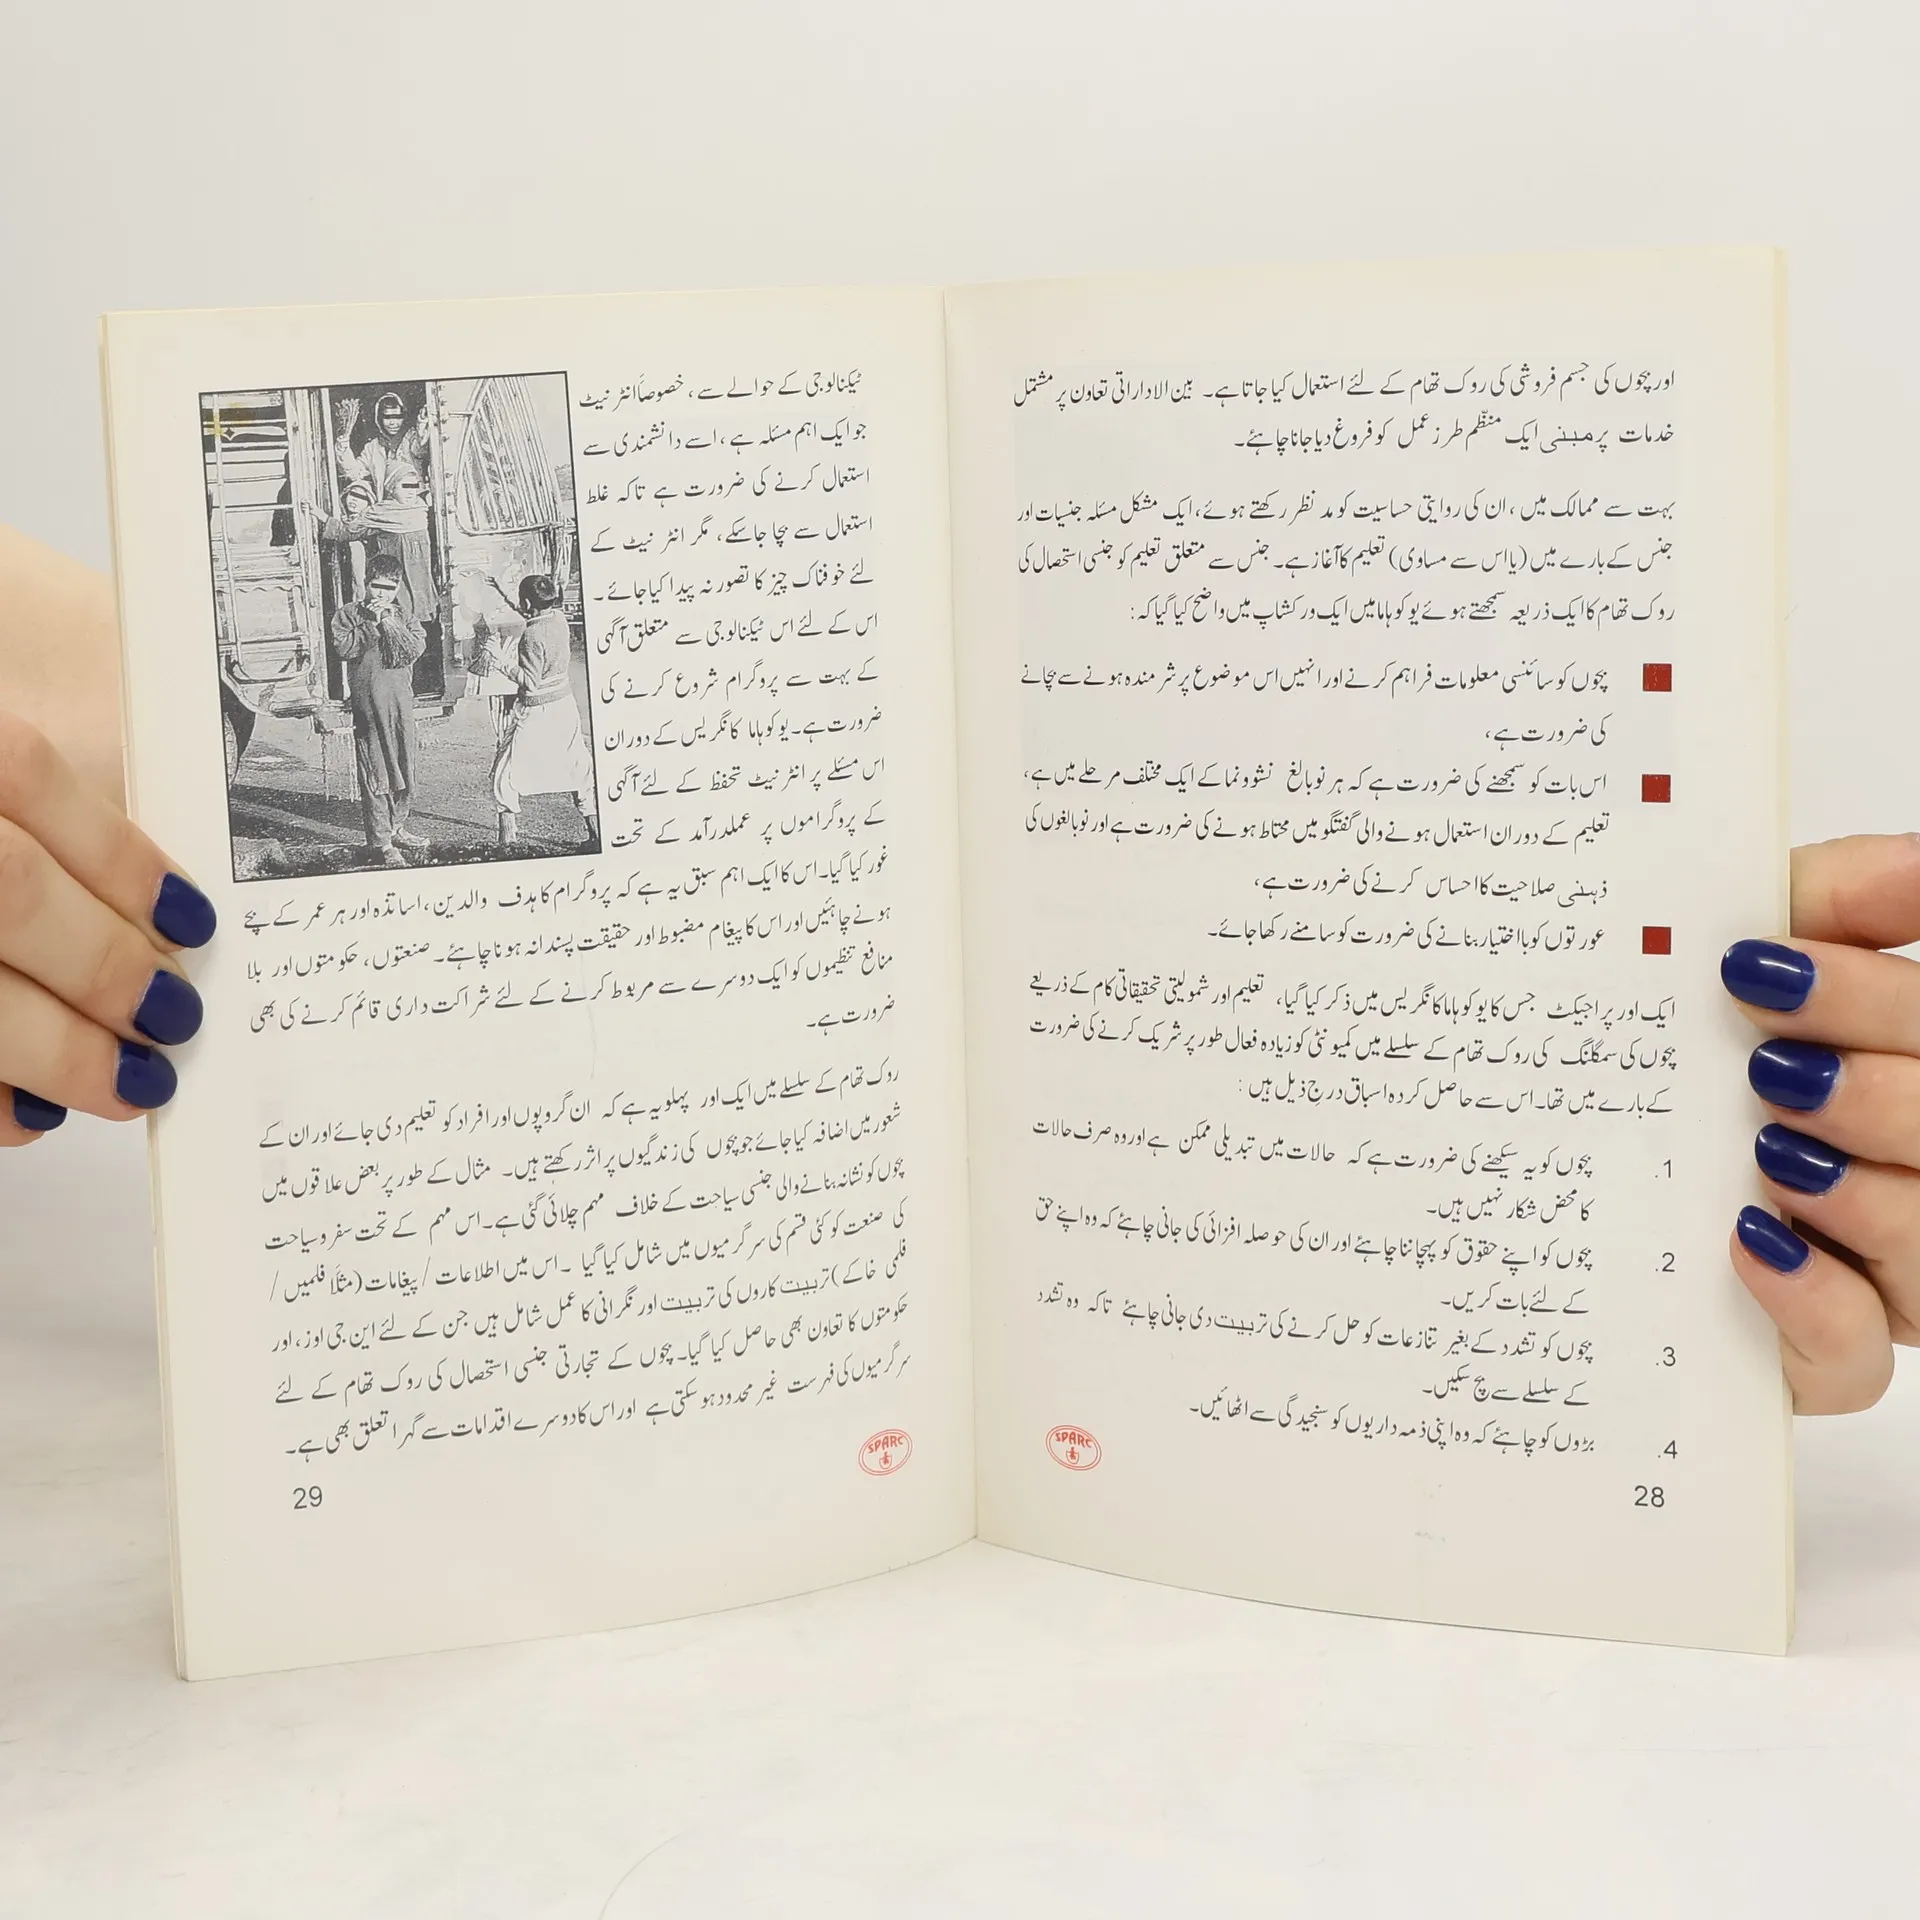 اور بچوں کی جسم فروشی کی روک تھام کے لئے استعمال کیا جاتا ہے۔ بین الاداراتی تعاون پر مشتمل
خدمات پر مبنی ایک منظّم طرز عمل کو فروغ دیا جانا چاہئے۔
بہت سے ممالک میں، ان کی روایتی حساسیت کو مد نظر رکھتے ہوئے، ایک مشکل مسئلہ جنسیات اور
جنس کے بارے میں (یا اس سے مساوی) تعلیم کا آغاز ہے۔ جنس سے متعلق تعلیم کو جنسی استحصال کی
روک تھام کا ایک ذریعہ سمجھتے ہوئے یوکوہاما میں ایک ورکشاپ میں واضح کیا گیا کہ:
بچوں کو سائنسی معلومات فراہم کرنے اور انہیں اس موضوع پر شرمندہ ہونے سے بچانے
کی ضرورت ہے،
اس بات کو سمجھنے کی ضرورت ہے کہ ہر نوبالغ نشوونما کے ایک مختلف مرحلے میں ہے،
تعلیم کے دوران استعمال ہونے والی گفتگو میں محتاط ہونے کی ضرورت ہے اور نوبالغوں کی
ذہنی صلاحیت کا احساس کرنے کی ضرورت ہے،
عورتوں کو بااختیار بنانے کی ضرورت کو سامنے رکھا جائے۔
ایک اور پراجیکٹ جس کا یوکوہاما کانگریس میں ذکر کیا گیا، تعلیم اور شمولیتی تحقیقاتی کام کے ذریعے
بچوں کی سمگلنگ کی روک تھام کے سلسلے میں کمیونٹی کو زیادہ فعال طور پر شریک کرنے کی ضرورت
کے بارے میں تھا۔ اس سے حاصل کردہ اسباق درج ذیل ہیں:
1. بچوں کو یہ سیکھنے کی ضرورت ہے کہ حالات میں تبدیلی ممکن ہے اور وہ صرف حالات
کا محض شکار نہیں ہیں۔
2. بچوں کو اپنے حقوق کو پہچاننا چاہئے اور ان کی حوصلہ افزائی کی جانی چاہئے کہ وہ اپنے حق
کے لئے بات کریں۔
3. بچوں کو تشدد کے بغیر تنازعات کو حل کرنے کی تربیت دی جانی چاہئے تاکہ وہ تشدد
کے سلسلے سے بچ سکیں۔
4. بڑوں کو چاہئے کہ وہ اپنی ذمہ داریوں کو سنجیدگی سے اٹھائیں۔
SPARC
28
ٹیکنالوجی کے حوالے سے، خصوصاً انٹرنیٹ
جو ایک اہم مسئلہ ہے، اسے دانشمندی سے
استعمال کرنے کی ضرورت ہے تاکہ غلط
استعمال سے بچا جا سکے، مگر انٹرنیٹ کے
لئے خوفناک چیز کا تصور نہ پیدا کیا جائے۔
اس کے لئے اس ٹیکنالوجی سے متعلق آگہی
کے بہت سے پروگرام شروع کرنے کی
ضرورت ہے۔ یوکوہاما کانگریس کے دوران
اس مسئلے پر انٹرنیٹ تحفظ کے لئے آگہی
کے پروگراموں پر عملدرآمد کے تحت
غور کیا گیا۔ اس کا ایک اہم سبق یہ ہے کہ پروگرام کا ہدف والدین، اساتذہ اور ہر عمر کے بچے
ہونے چاہئیں اور اس کا پیغام مضبوط اور حقیقت پسندانہ ہونا چاہئے۔ صنعتوں، حکومتوں اور بلا
منافع تنظیموں کو ایک دوسرے سے مربوط کرنے کے لئے شراکت داری قائم کرنے کی بھی
ضرورت ہے۔
روک تھام کے سلسلے میں ایک اور پہلو یہ ہے کہ ان گروپوں اور افراد کو تعلیم دی جائے اور ان کے
شعور میں اضافہ کیا جائے جو بچوں کی زندگیوں پر اثر رکھتے ہیں۔ مثال کے طور پر بعض علاقوں میں
بچوں کو نشانہ بنانے والی جنسی سیاحت کے خلاف مہم چلائی گئی ہے۔ اس مہم کے تحت سفر و سیاحت
کی صنعت کو کئی قسم کی سرگرمیوں میں شامل کیا گیا۔ اس میں اطلاعات / پیغامات (مثلاً فلمیں /
فلمی خاکے) تربیت کاروں کی تربیت اور نگرانی کا عمل شامل ہیں جن کے لئے این جی اوز، اور
حکومتوں کا تعاون بھی حاصل کیا گیا۔ بچوں کے تجارتی جنسی استحصال کی روک تھام کے لئے
سرگرمیوں کی فہرست غیر محدود ہو سکتی ہے اور اس کا دوسرے اقدامات سے گہرا تعلق بھی ہے۔
SPARC
29